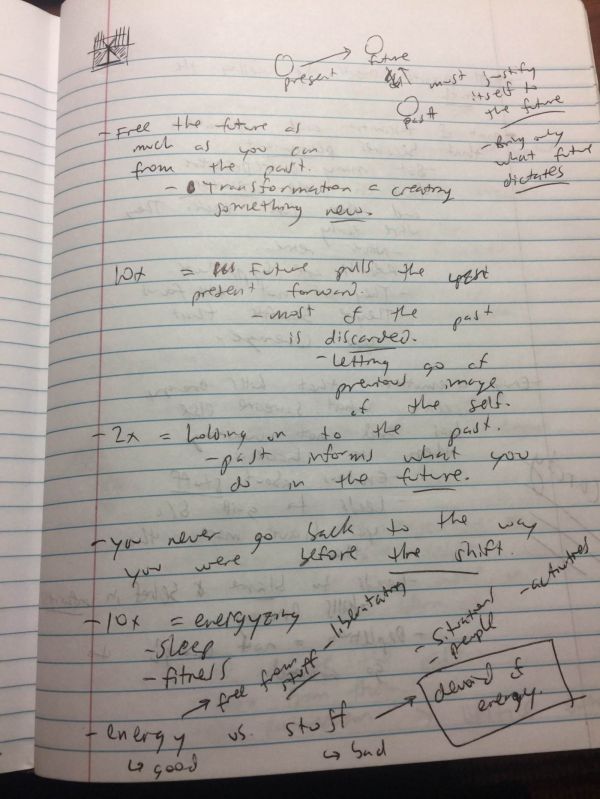 present
future
past
must justify
itself to
the future
- Bring only
what future
dictates
- Free the future as
much as you can
from the past.
- Transformation = creating
something new.
10x = Future pulls the
present forward.
- most of the past
is discarded.
- Letting go of
previous image
of the self.
- 2x = holding on to the past.
- past informs what you
do in the future.
- you never go back to the way
you were before the shift.
- 10x = energyzing
- sleep
- fitness
- energy vs. stuff
↳ good
↳ bad
→ free from stuff
- liberatating
- Situations
- people
- activities
devoid of
energy.